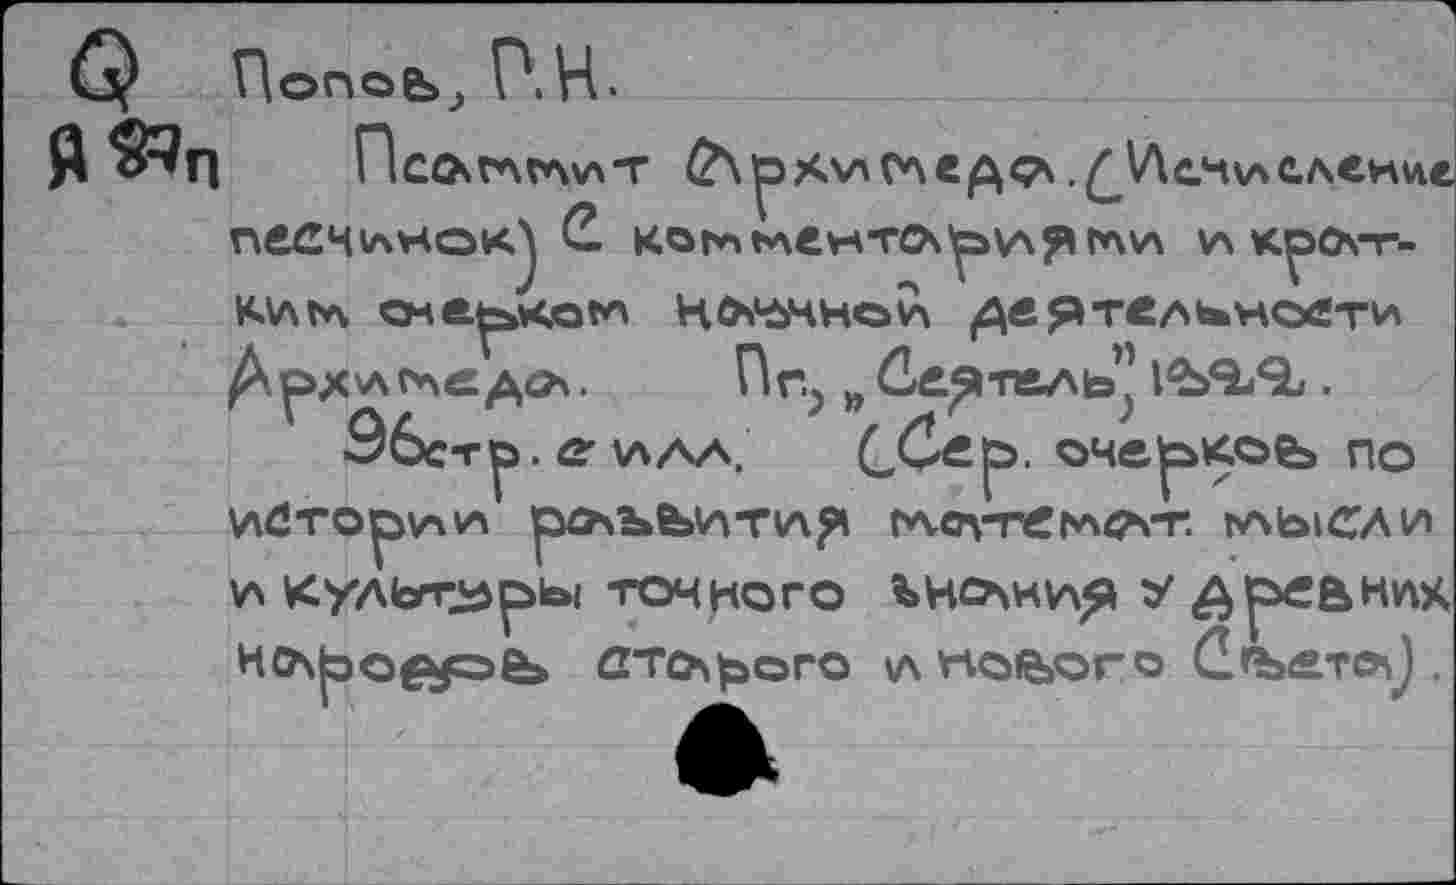 Q Попов, Г.Н.
Я п Псаммит Архимеда. (Исчисление
песчинок) С комментариями и крат-
ким очерком научной деятельности
Архимеда. Пг., „Сеятель", 1922.
96стр. с илл. (Сер. очерков по
истории развития математ. мысли
и культуры точного знания у древних
народов старого и нового Света).